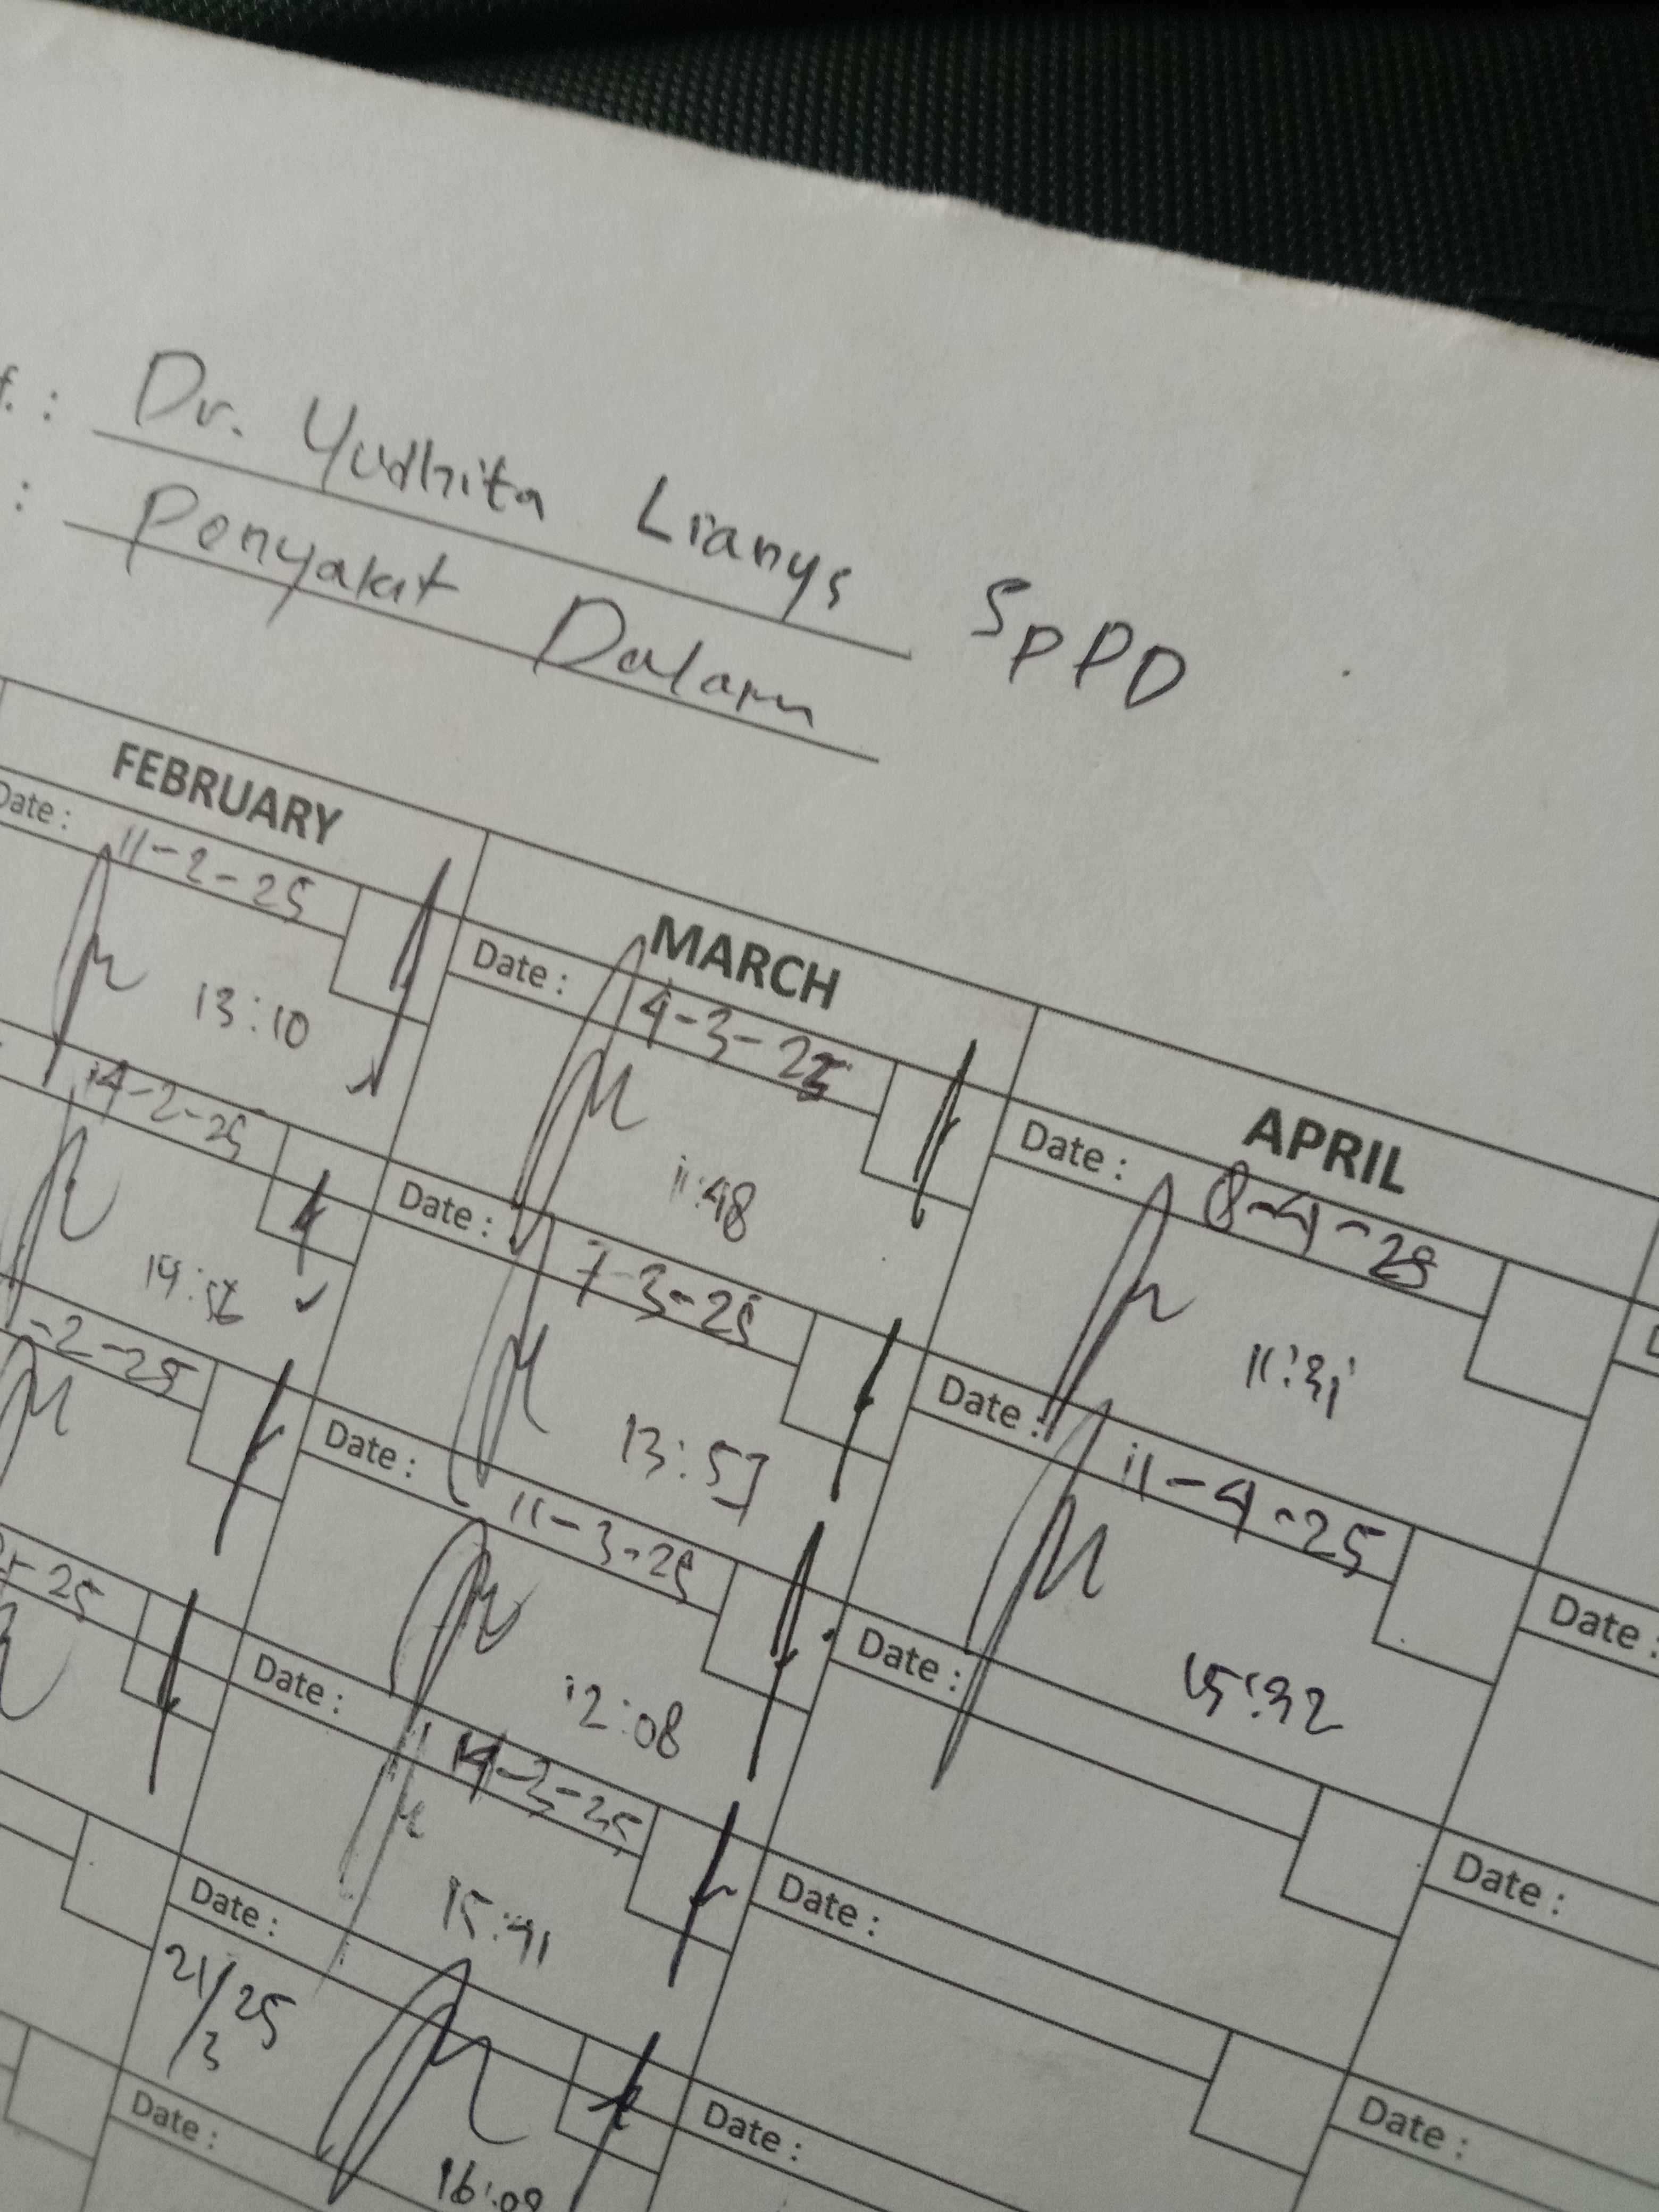 f. : Dr. Yudhita Lianys SpPD
: Penyakit Dalam
FEBRUARY
Date : 11-2-25
13:10
14-2-25
-2-25
-25
MARCH
Date : 4-3-25
11:48
Date : 7-3-25
13:57
Date : 11-3-25
12:08
Date : 14-3-25
15:41
Date :
21/3 25
16:09
Date :
APRIL
Date : 8-4-25
11:31
Date : 11-4-25
15:32
Date :
Date :
Date :
Date :
Date :
Date :